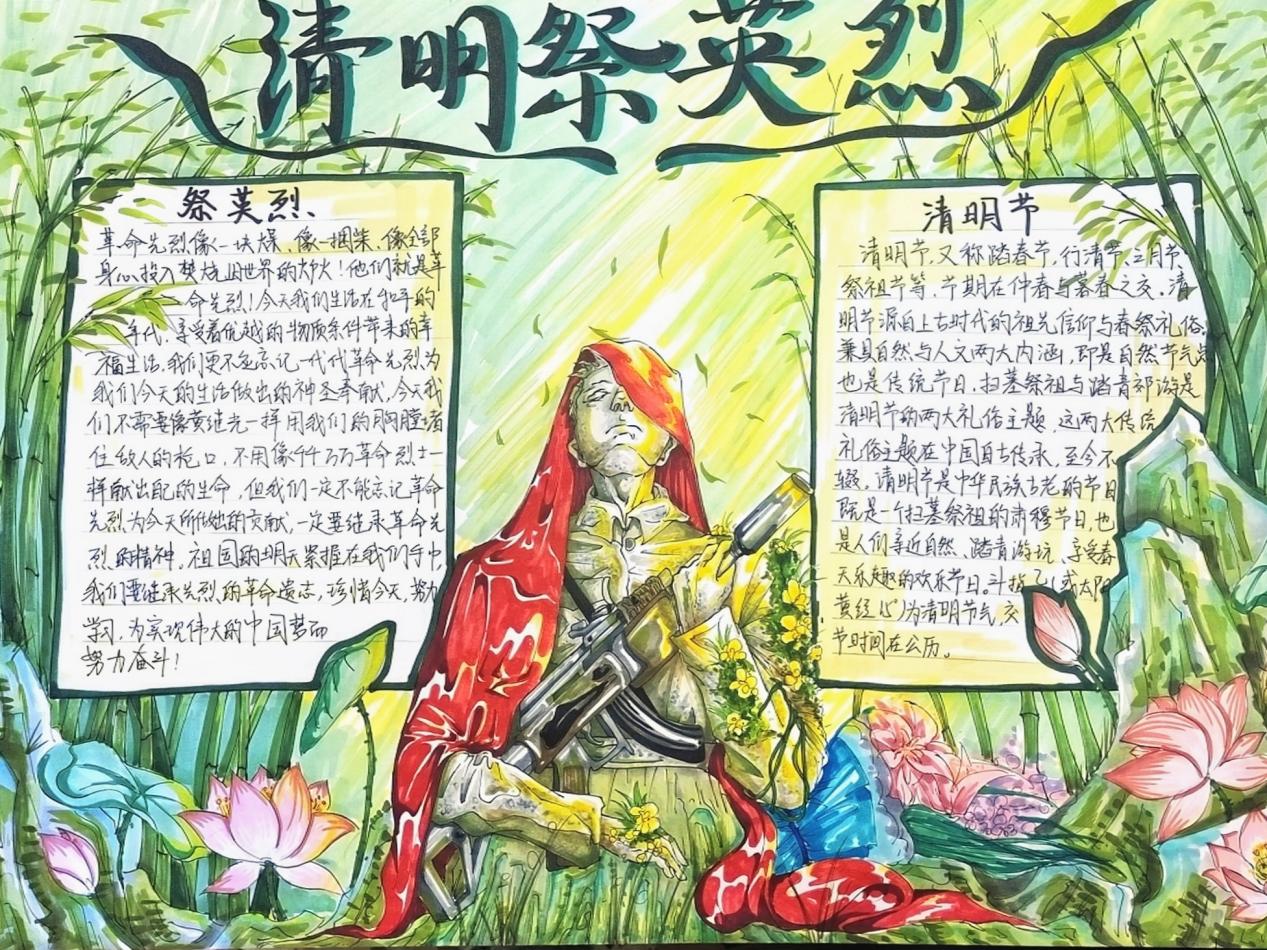 清明祭英烈
祭英烈、
革命先烈像一块煤、像一捆柴、像全部
身心投入焚烧旧世界的大火！他们就是革
命先烈！今天我们生活在和平的
年代、享受着优越的物质条件带来的幸
福生活，我们更不能忘记一代代革命先烈为
我们今天的生活做出的神圣奉献，今天我
们不需要像黄继光一样用我们的胸膛堵
住敌人的枪口，不用像千千万万革命烈士一
样献出自己的生命，但我们一定不能忘记革命
先烈为今天所做出的贡献，一定要继承革命先
烈的精神，祖国的明天紧握在我们手中，
我们要继承先烈的革命遗志，珍惜今天，努力
学习，为实现伟大的中国梦而
努力奋斗！
清明节
清明节，又称踏春节，行清节、三月节、
祭祖节等，节期在仲春与暮春之交。清
明节源自上古时代的祖先信仰与春祭礼俗，
兼具自然与人文两大内涵，即是自然节气点
也是传统节日，扫墓祭祖与踏青郊游是
清明节的两大礼俗主题，这两大传统
礼俗主题在中国自古传承，至今不
辍。清明节是中华民族古老的节日
既是一个扫墓祭祖的肃穆节日，也
是人们亲近自然、踏青游玩、享受春
天乐趣的欢乐节日。斗指乙（或太阳
黄经 ）为清明节气，交
节时间在公历。